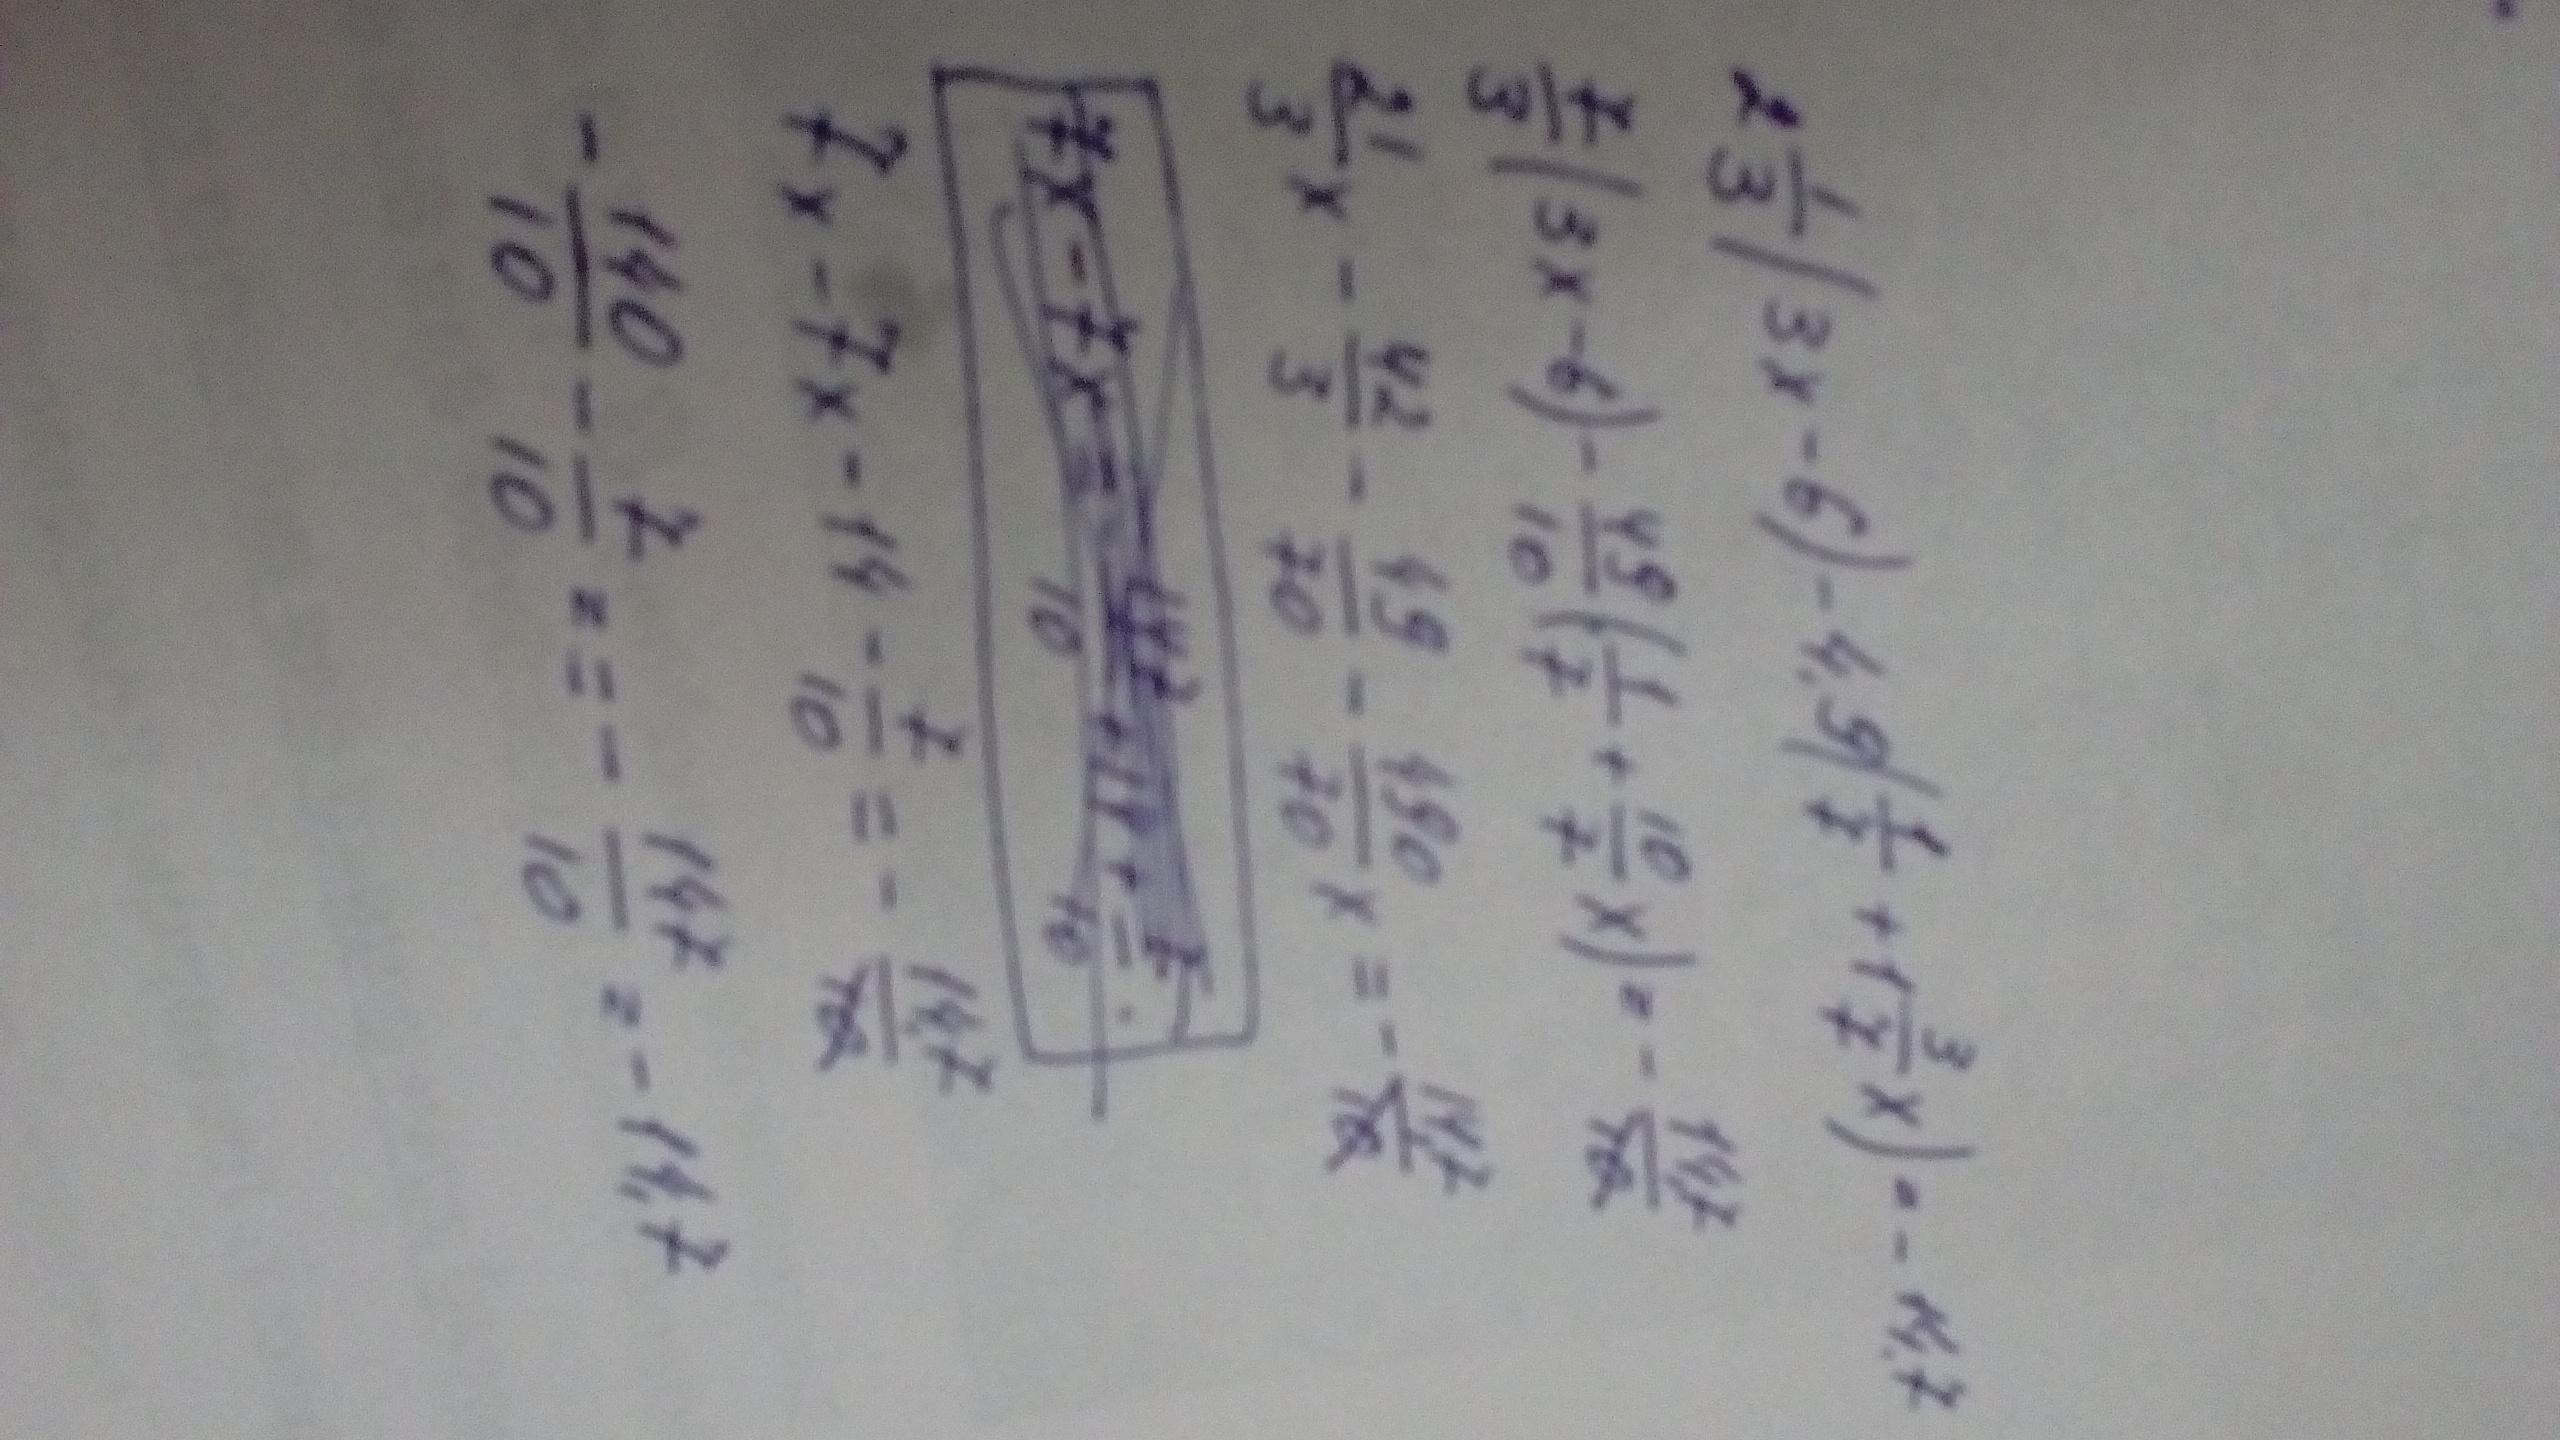 2 1/3 (3x - 6) - 4,9(1/7 + 1 3/7 x) = -14,7
7/3 (3x - 6) - 49/10 (1/7 + 10/7 x) = - 14,7/10
21/3 x - 42/3 - 49/70 - 490/70 x = - 14,7/10
7x - 7x - 14 - 7/10 = - 14,7/10
- 140/10 - 7/10 = = - 147/10 = -14,7